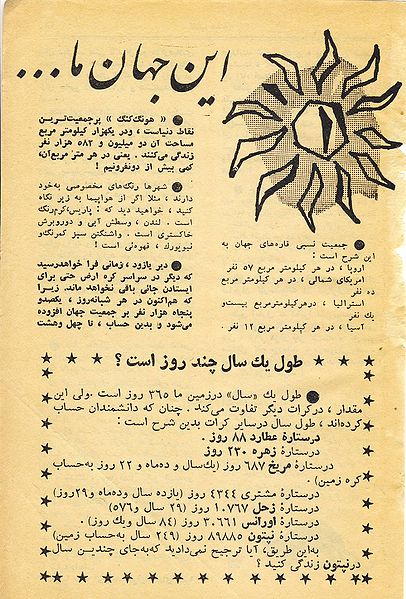 این جهان ما...
● « هونگ‌کنگ » پرجمعیت‌ترین
نقاط دنیاست ، ودر یکهزار کیلومتر مربع
مساحت آن دو میلیون و ۵۸۳ هزار نفر
زندگی می‌کنند . یعنی در هر متر مربع‌آن،
کمی بیش از دونفرونیم !
● شهرها رنگ‌های مخصوصی به‌خود
دارند ، مثلا اگر از هواپیما به زیر نگاه
کنید ، خواهید دید که : پاریس،کرم‌رنگ
است . لندن، وسطش آبی و دوروبرش
خاکستری است . واشنگتن سبز کمرنگ‌و
نیویورك، قهوه‌ئی است !
● دیر یازود ، زمانی فرا خواهدرسید
که دیگر در سراسر کره ارض حتی برای
ایستادن جائی باقی نخواهد ماند. زیـرا
که هم‌اکنون در هر شبانه‌روز، یکصدو
پنجاه هزار نفر بر جمعیت جهان افزوده
می‌شود و بدین حساب ، تا چهل وهشت
● جمعیت نسبی قاره‌های جهان به
این شرح است :
اروپا ، در هر کیلومتر مربع ۵۷ نفر
امریکای شمالی ، در هر کیلومتر مربع
ده نفر
استرالیا ، درهرکیلومترمربع بیست‌و
یك نفر
آسیا ، در هر کیلومتر مربع ۱۲ نفر .
طول یك سال چند روز است ؟
● طول یك «سال» درزمین ما ۳۶۵ روز است .ولی این
مقدار ، درکرات دیگر تفاوت می‌کند . چنان که دانشمندان حساب
کرده‌اند ، طول سال درسایر کرات بدین شرح است :
درستارهٔ عطارد ۸۸ روز .
درستارهٔ زهره ۲۳۰ روز
درستارهٔ مریخ ۶۸۷ روز (یك‌سال و ده‌ماه و ۲۲ روز به‌حساب
کره زمین) .
درستارهٔ مشتری ۴۳۴۴ روز (یازده سال وده‌ماه و۲۹روز)
درستارهٔ زحل ۱۰.۷۶۷ روز (۲۹ سال و۵۷۶)
درستارهٔ اورانس ۳۰.۶۶۱ روز (۸۴ سال ویك روز) .
درستارهٔ نپتون ۸۹۸۸۵ روز (۲۴۹ سال به‌حساب زمین)
به‌این طریق، آیا ترجیح نمی‌دادید که‌به‌جای چندین سال
درنپتون زندگی کنید ؟